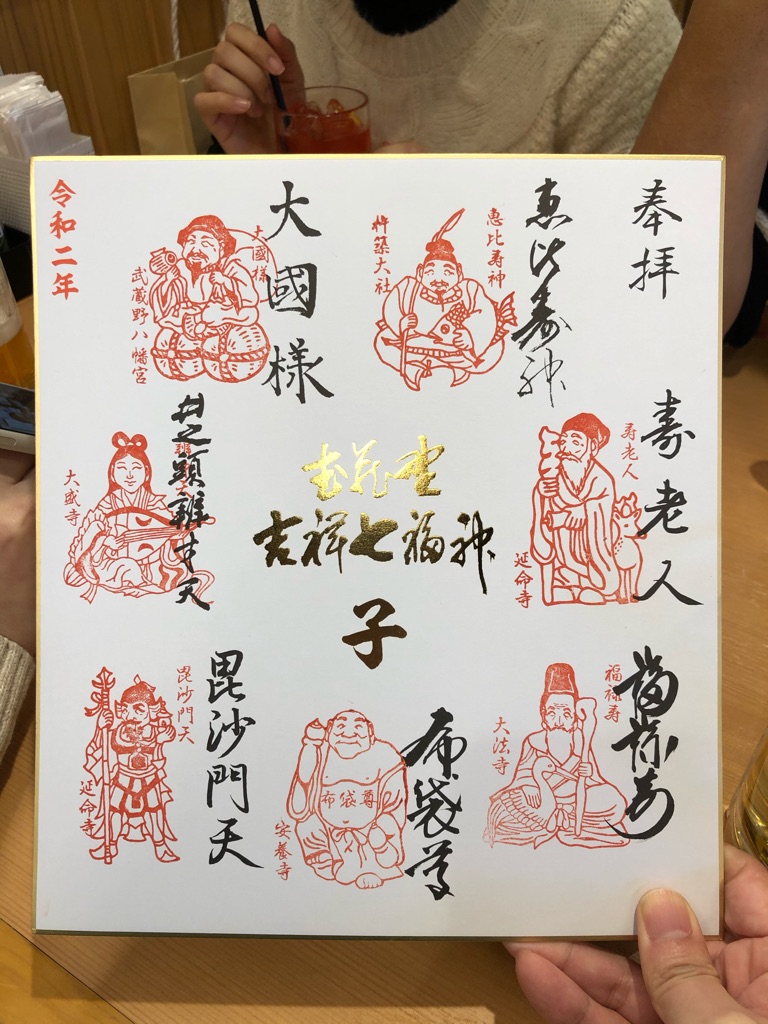 奉拝
恵比寿神
恵比寿神
杵築大社
大國様
大国様
武蔵野八幡宮
令和二年
寿老人
寿老人
延命寺
吉祥七福神
子
井之頭辨才天
大盛寺
福禄寿
福禄寿
大法寺
布袋尊
布袋尊
安養寺
毘沙門天
毘沙門天
延命寺